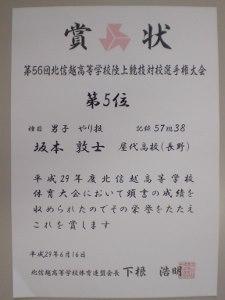 賞状
第56回北信越高等学校陸上競技対校選手権大会
第5位
種目 男子 やり投 記録 57m38
坂本 敦士 屋代高校(長野)
平成29年度北信越高等学校
体育大会において頭書の成績を
収められたのでその栄誉をたたえ
これを賞します
平成29年6月16日
北信越高等学校体育連盟会長 下根 浩明